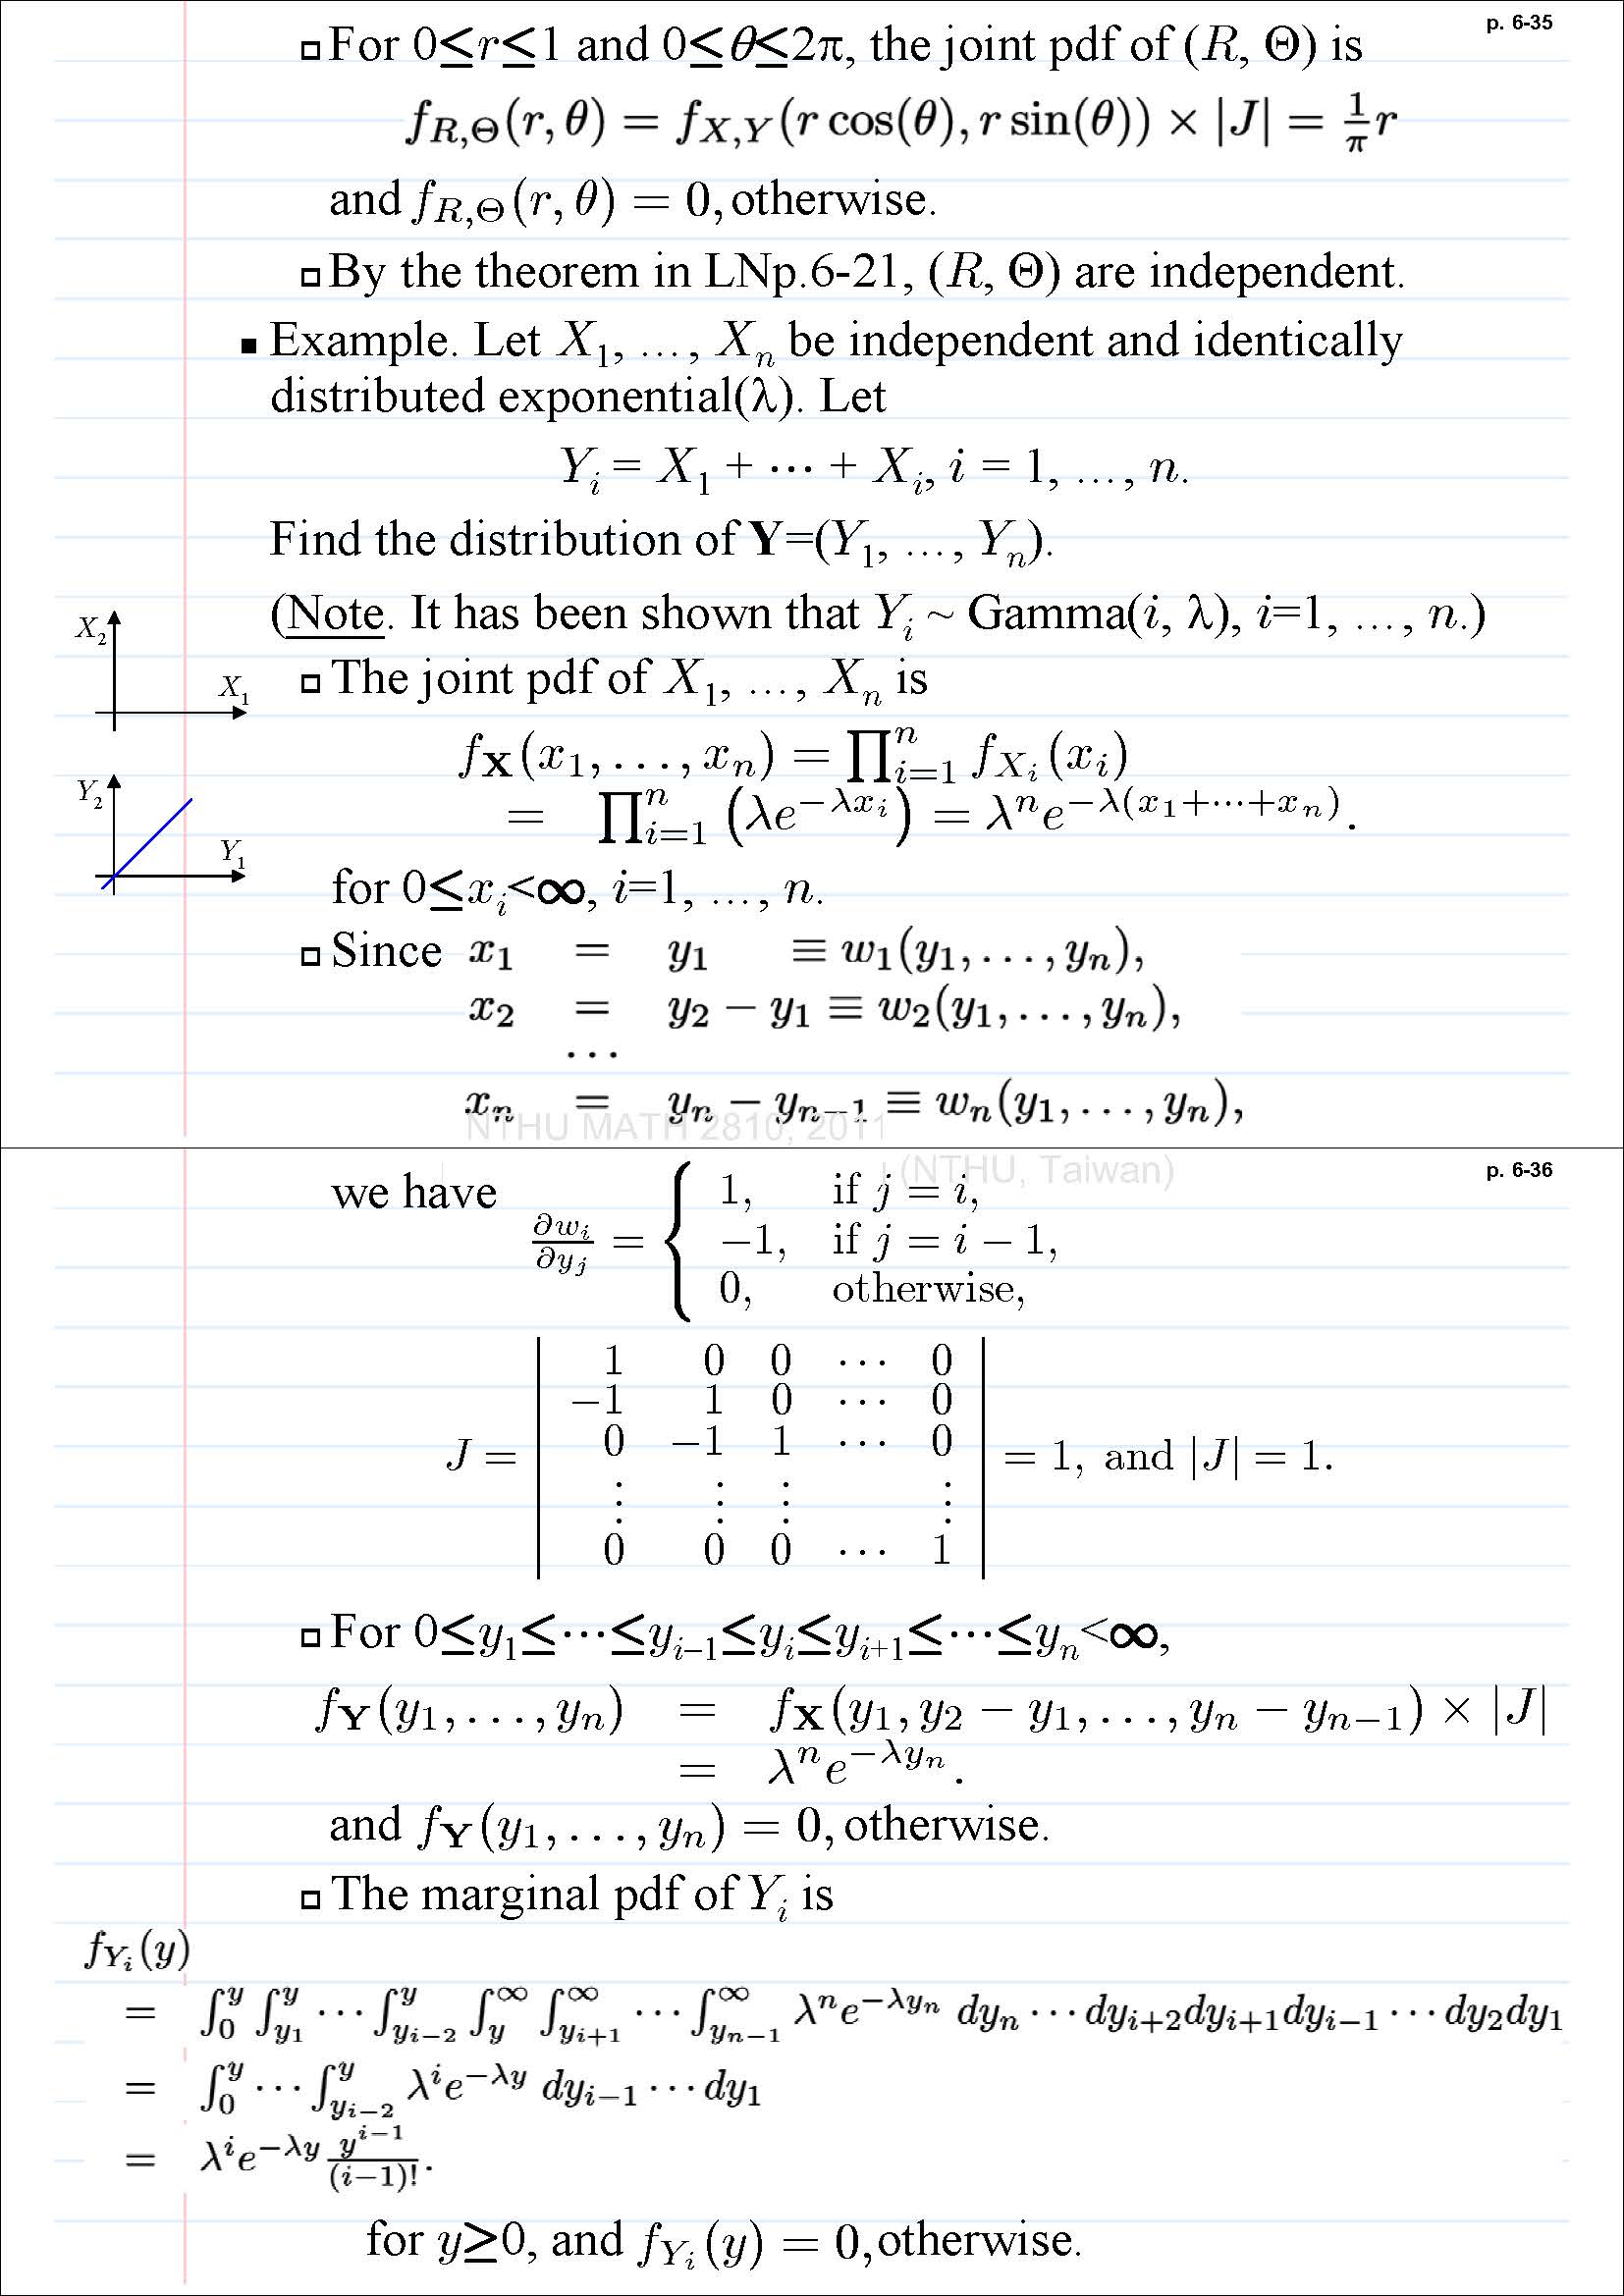 p. 6-35
□ For 0≤r≤1 and 0≤θ≤2π, the joint pdf of (R, Θ) is
f_{R,Θ}(r, θ) = f_{X,Y}(r cos(θ), r sin(θ)) × |J| = \frac{1}{π} r
and f_{R,Θ}(r, θ) = 0, otherwise.
□ By the theorem in LNp.6-21, (R, Θ) are independent.
■ Example. Let X_1, …, X_n be independent and identically
distributed exponential(λ). Let
Y_i = X_1 + ⋯ + X_i, i = 1, …, n.
Find the distribution of Y=(Y_1, …, Y_n).
(Note. It has been shown that Y_i ~ Gamma(i, λ), i=1, …, n.)
X_2
X_1
□ The joint pdf of X_1, …, X_n is
f_X(x_1, …, x_n) = ∏_{i=1}^n f_{X_i}(x_i)
= ∏_{i=1}^n (λe^{−λx_i}) = λ^n e^{−λ(x_1+⋯+x_n)}.
Y_2
Y_1
for 0≤x_i<∞, i=1, …, n.
□ Since x_1 = y_1 ≡ w_1(y_1, …, y_n),
x_2 = y_2 − y_1 ≡ w_2(y_1, …, y_n),
⋯
x_n = y_n − y_{n−1} ≡ w_n(y_1, …, y_n),
NTHU MATH 2810, 2011
(NTHU, Taiwan)
p. 6-36
we have \frac{∂w_i}{∂y_j} = { 1, if j = i,
−1, if j = i − 1,
0, otherwise,
J = | 1 0 0 ⋯ 0
−1 1 0 ⋯ 0
0 −1 1 ⋯ 0
⋮ ⋮ ⋮ ⋮
0 0 0 ⋯ 1 | = 1, and |J| = 1.
□ For 0≤y_1≤⋯≤y_{i−1}≤y_i≤y_{i+1}≤⋯≤y_n<∞,
f_Y(y_1, …, y_n) = f_X(y_1, y_2 − y_1, …, y_n − y_{n−1}) × |J|
= λ^n e^{−λy_n}.
and f_Y(y_1, …, y_n) = 0, otherwise.
□ The marginal pdf of Y_i is
f_{Y_i}(y)
= ∫_0^y ∫_{y_1}^y ⋯ ∫_{y_{i−2}}^y ∫_y^∞ ∫_{y_{i+1}}^∞ ⋯ ∫_{y_{n−1}}^∞ λ^n e^{−λy_n} dy_n ⋯ dy_{i+2}dy_{i+1}dy_{i−1} ⋯ dy_2dy_1
= ∫_0^y ⋯ ∫_{y_{i−2}}^y λ^i e^{−λy} dy_{i−1} ⋯ dy_1
= λ^i e^{−λy} \frac{y^{i−1}}{(i−1)!}.
for y≥0, and f_{Y_i}(y) = 0, otherwise.